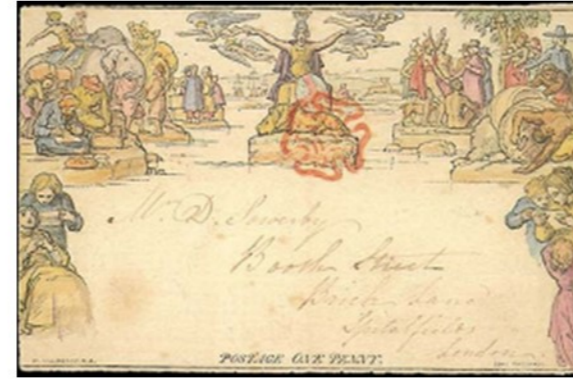 Mr. D. Sowerby
Booth Street
Brick Lane
Spitalfields
London
POSTAGE ONE PENNY.